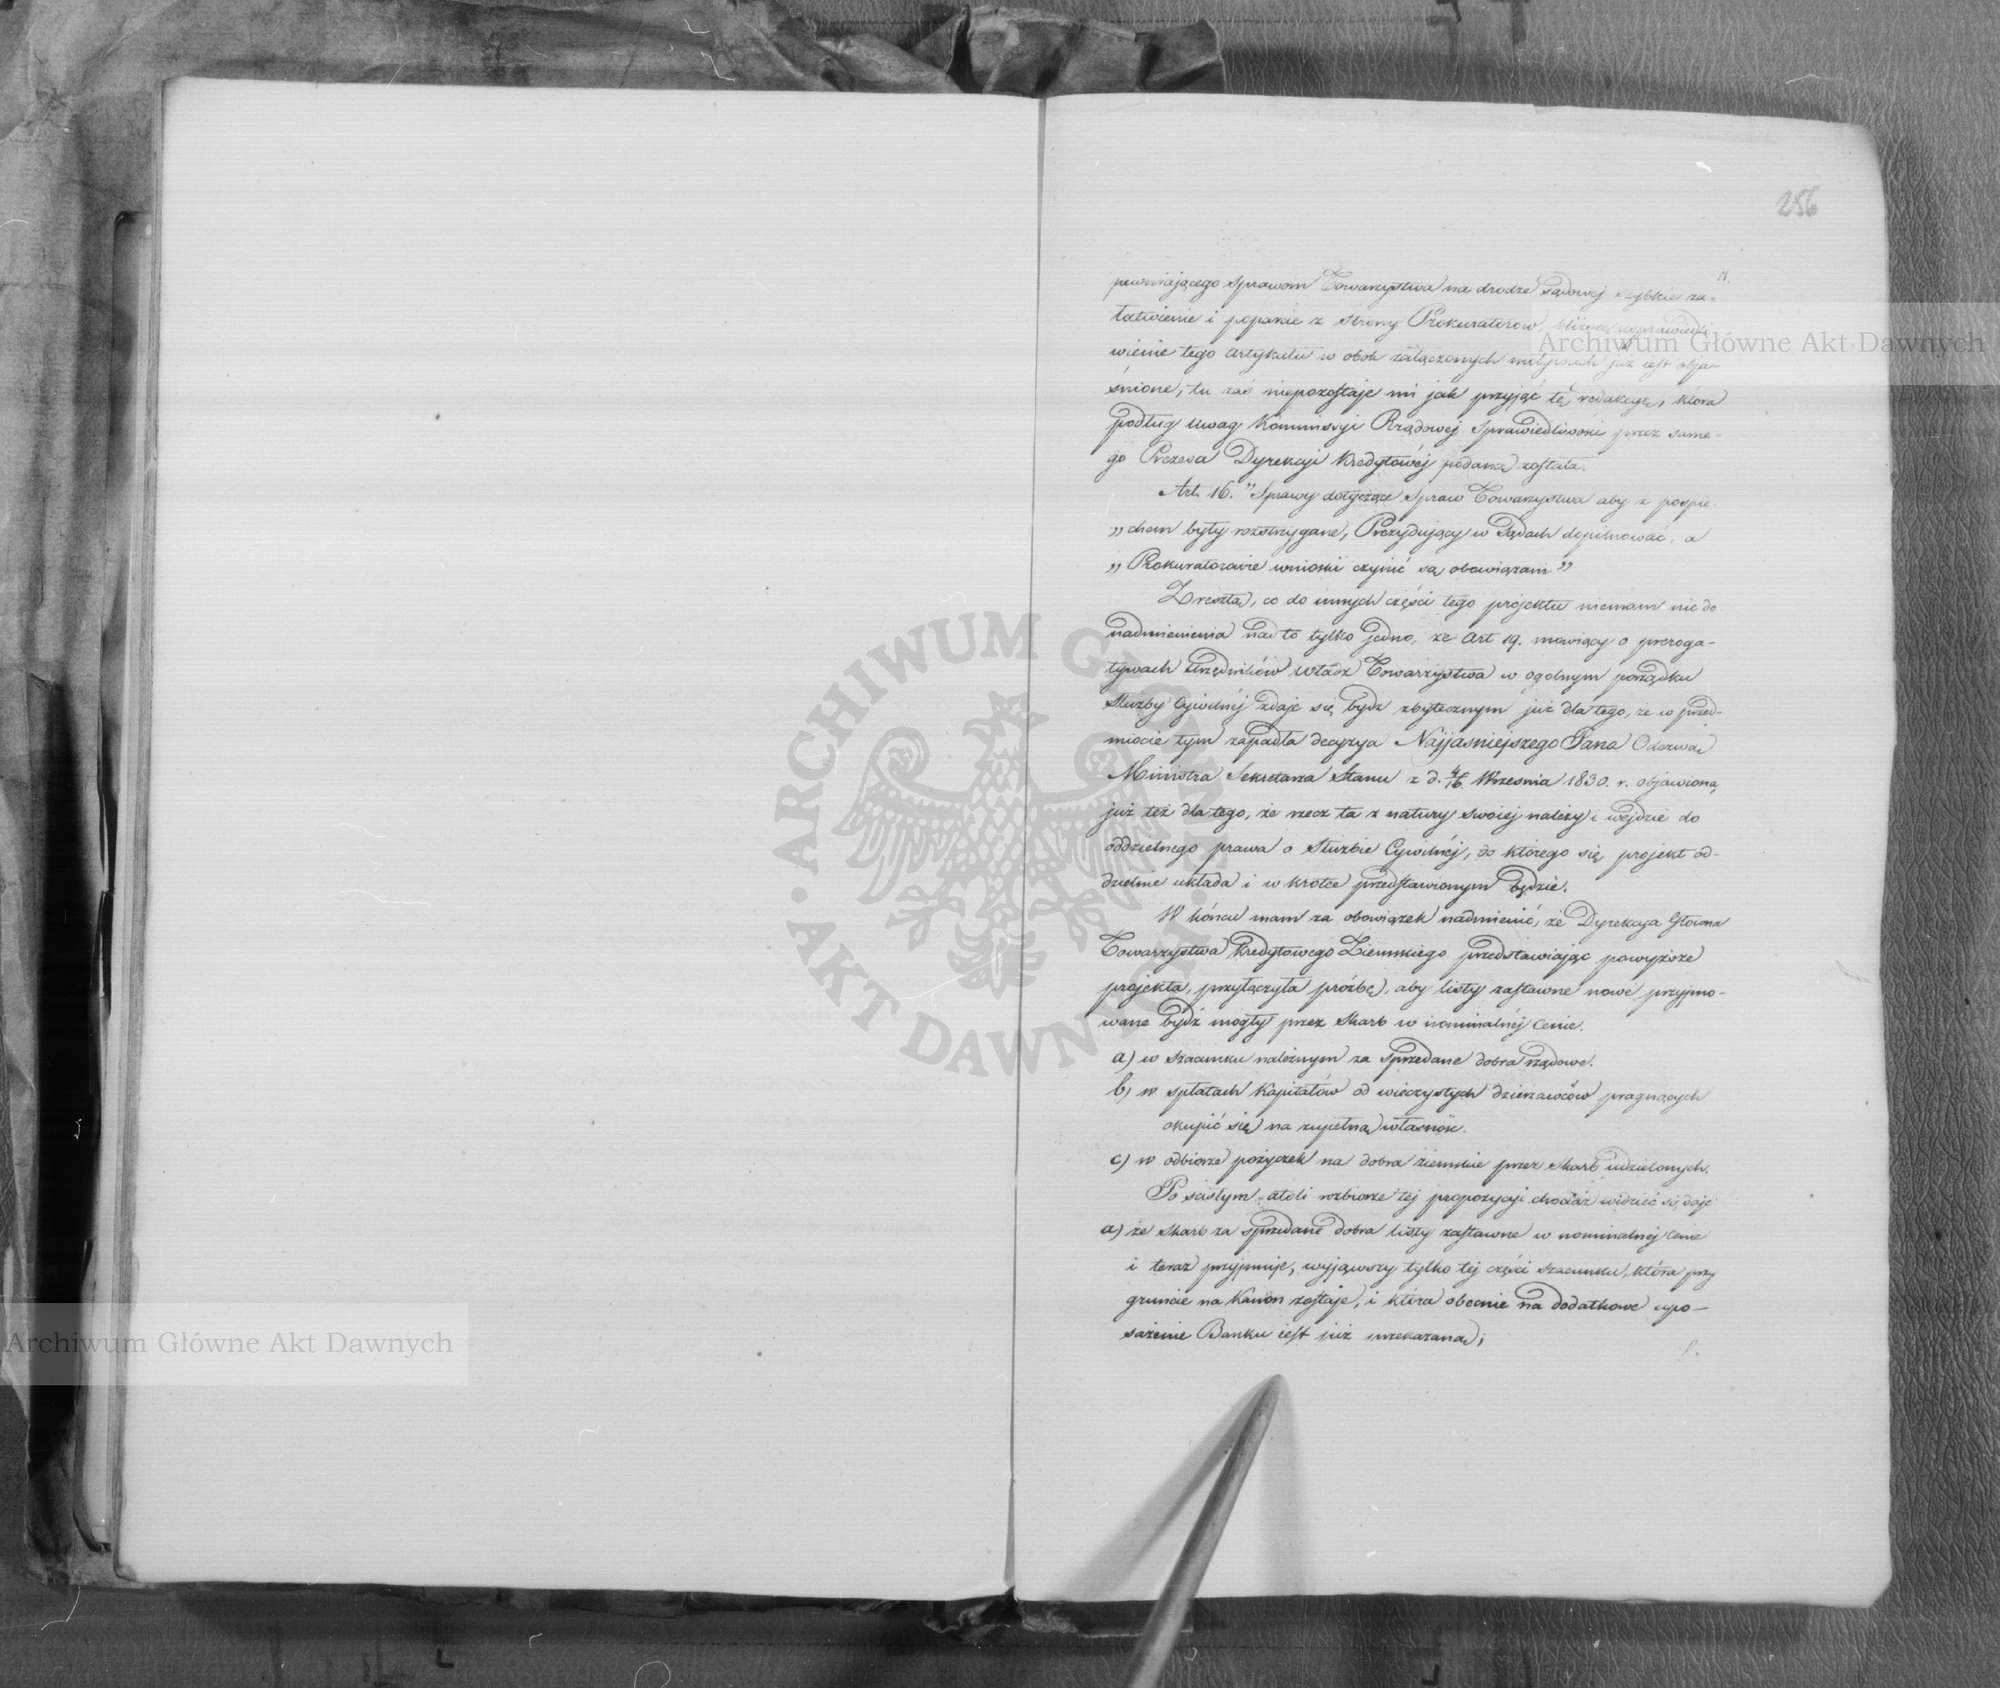 256
17.
pewniającego sprawom Towarzystwa na drodze sądowej szybkie za-
łatwienie i poparcie z strony Prokuratorow,
wienie tego artykułu w obok załączonych motywach już iest obja-
śnione, tu zaś niepozostaje mi jak przyjąć tę redakcyę, która
podług uwag Kommissyi Rządowej Sprawiedliwości przez same-
go Prezesa Dyrekcyi Kredytowéj podaną została.
Art. 16. "Sprawy dotyczące Spraw Towarzystwa aby z pospie-
„chem były rozstrzygane, Prezydujący w Sądach dopilnować, a
„Prokuratorowie wnioski czynić są obowiązani"
Zresztą, co do innych części tego projektu niemam nic do
nadmienienia nad to tylko jedno, że Art 19. mowiący o preroga-
tywach Urzędników Władz Towarzystwa w ogolnym porządku
Służby Cywilnéj zdaje się bydz zbytecznym już dla tego, że w przed-
miocie tym zapadła decyzya Najjaśniejszego Pana Odezwą
Ministra Sekretarza Stanu z d. 4/16. Września 1830. r. objawiona,
już też dla tego, że rzecz ta z natury swoiej należy i wejdzie do
oddzielnego prawa o Służbie Cywilnéj, do którego się projekt od-
dzielnie układa i w krotce przedstawionym będzie.
W końcu mam za obowiązek nadmienić, że Dyrekcya Główna
Towarzystwa Kredytowego Ziemskiego przedstawiając powyższe
projekta, przyłączyła prożbę, aby listy zastawne nowe przyjmo-
wane bydź mogły przez Skarb w nominalnéj Cenie.
a) w szacunku należnym za sprzedane dobra rządowe.
b) w spłatach Kapitałów od wieczystych dzierzawców pragnących
okupić się na zupełną własność.
c) w odbiorze pożyczek na dobra ziemskie przez Skarb udzielonych.
Po scisłym atoli rozbiorze tej propozycyi chociaż widzieć się daje
a) że Skarb za sprzedane dobra listy zastawne w nominalnéj Cenie
i teraz przyjmuje, wyjąwszy tylko tej części szacunku, która przy
gruncie na Kanon zostaje, i która obecnie na dodatkowe upo-
sażenie Banku iest już przekazaną;
Archiwum Główne Akt Dawnych
Archiwum Główne Akt Dawnych
ARCHIWUM GŁÓWNE · AKT DAWNYCH ·